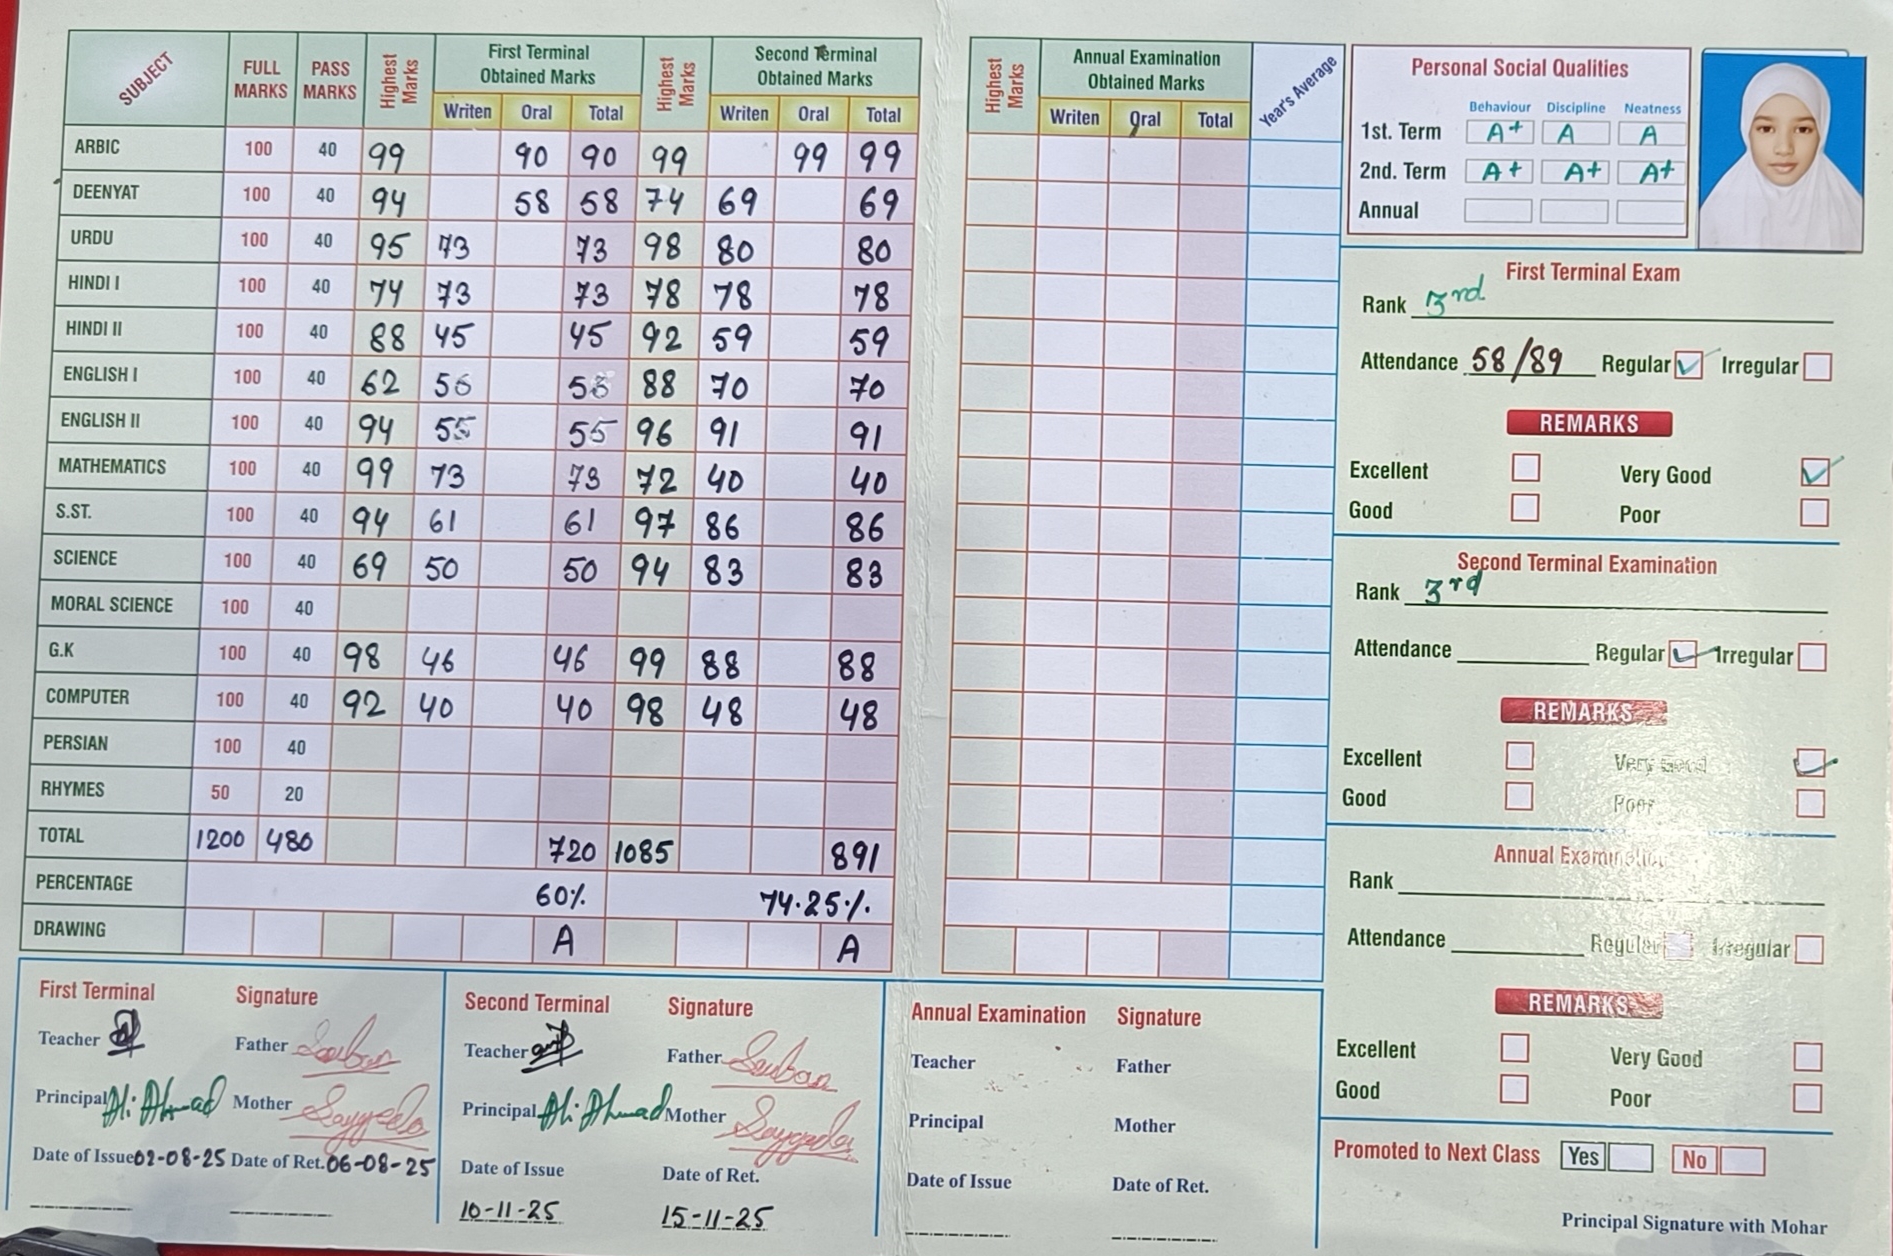 SUBJECT FULL MARKS PASS MARKS Highest Marks First Terminal Obtained Marks Highest Marks Second Terminal Obtained Marks
Writen Oral Total Writen Oral Total
ARBIC 100 40 99 90 90 99 99 99
DEENYAT 100 40 94 58 58 74 69 69
URDU 100 40 95 73 73 98 80 80
HINDI I 100 40 74 73 73 78 78 78
HINDI II 100 40 88 45 45 92 59 59
ENGLISH I 100 40 62 56 56 88 70 70
ENGLISH II 100 40 94 55 55 96 91 91
MATHEMATICS 100 40 99 73 73 72 40 40
S.ST. 100 40 94 61 61 97 86 86
SCIENCE 100 40 69 50 50 94 83 83
MORAL SCIENCE 100 40
G.K 100 40 98 46 46 99 88 88
COMPUTER 100 40 92 40 40 98 48 48
PERSIAN 100 40
RHYMES 50 20
TOTAL 1200 480 720 1085 891
PERCENTAGE 60% 74.25%
DRAWING A A
Highest Marks Annual Examination Obtained Marks Year's Average
Writen Oral Total
Personal Social Qualities
Behaviour Discipline Neatness
1st. Term A+ A A
2nd. Term A+ A+ A+
Annual
First Terminal Exam
Rank 3rd
Attendance 58/89 Regular Irregular
REMARKS
Excellent Very Good
Good Poor
Second Terminal Examination
Rank 3rd
Attendance Regular Irregular
REMARKS
Excellent Very Good
Good Poor
Annual Examination
Rank
Attendance Regular Irregular
REMARKS
Excellent Very Good
Good Poor
Promoted to Next Class Yes No
Principal Signature with Mohar
First Terminal Signature
Teacher Father
Principal Ali Ahmad Mother Sayyeda
Date of Issue 02-08-25 Date of Ret. 06-08-25
Second Terminal Signature
Teacher Father
Principal Ali Ahmad Mother Sayyeda
Date of Issue Date of Ret.
10-11-25 15-11-25
Annual Examination Signature
Teacher Father
Principal Mother
Date of Issue Date of Ret.